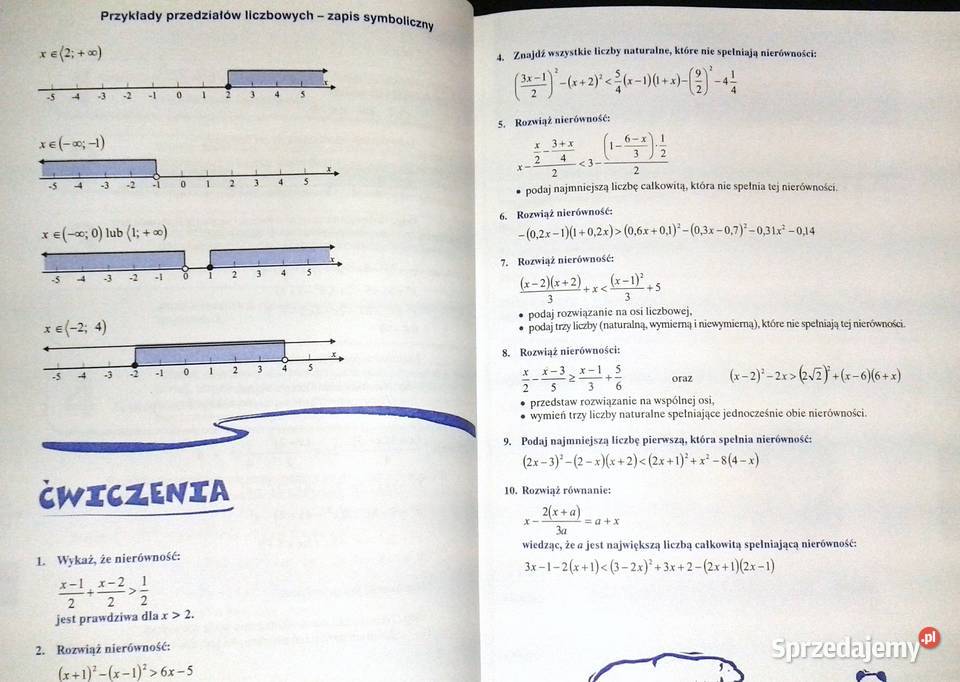 Przykłady przedziałów liczbowych – zapis symboliczny
x ∈ ⟨2; + ∞)
-5 -4 -3 -2 -1 0 1 2 3 4 5 x
x ∈ (−∞; −1)
-5 -4 -3 -2 -1 0 1 2 3 4 5 x
x ∈ (−∞; 0) lub ⟨1; + ∞)
-5 -4 -3 -2 -1 0 1 2 3 4 5 x
x ∈ ⟨−2; 4)
-5 -4 -3 -2 -1 0 1 2 3 4 5 x
ĆWICZENIA
1. Wykaż, że nierówność:
(x−1)/2 + (x−2)/2 > 1/2
jest prawdziwa dla x > 2.
2. Rozwiąż nierówność:
(x+1)² − (x−1)² > 6x − 5
4. Znajdź wszystkie liczby naturalne, które nie spełniają nierówności:
((3x−1)/2)² − (x+2)² < 5/4 (x−1)(1+x) − (9/2)² − 4 1/4
5. Rozwiąż nierówność:
x − (x/2 − (3+x)/4)/2 < 3 − ((1 − (6−x)/3) · 1/2)/2
• podaj najmniejszą liczbę całkowitą, która nie spełnia tej nierówności.
6. Rozwiąż nierówność:
−(0,2x−1)(1+0,2x) > (0,6x+0,1)² − (0,3x−0,7)² − 0,31x² − 0,14
7. Rozwiąż nierówność:
(x−2)(x+2)/3 + x < (x−1)²/3 + 5
• podaj rozwiązanie na osi liczbowej,
• podaj trzy liczby (naturalną, wymierną i niewymierną), które nie spełniają tej nierówności.
8. Rozwiąż nierówności:
x/2 − (x−3)/5 ≥ (x−1)/3 + 5/6 oraz (x−2)² − 2x > (2√2)² + (x−6)(6+x)
• przedstaw rozwiązanie na wspólnej osi,
• wymień trzy liczby naturalne spełniające jednocześnie obie nierówności.
9. Podaj najmniejszą liczbę pierwszą, która spełnia nierówność:
(2x−3)² − (2−x)(x+2) < (2x+1)² + x² − 8(4−x)
10. Rozwiąż równanie:
x − 2(x+a)/3a = a + x
wiedząc, że a jest największą liczbą całkowitą spełniającą nierówność:
3x−1−2(x+1) < (3−2x)² + 3x + 2 − (2x+1)(2x−1)
Sprzedajemy.pl